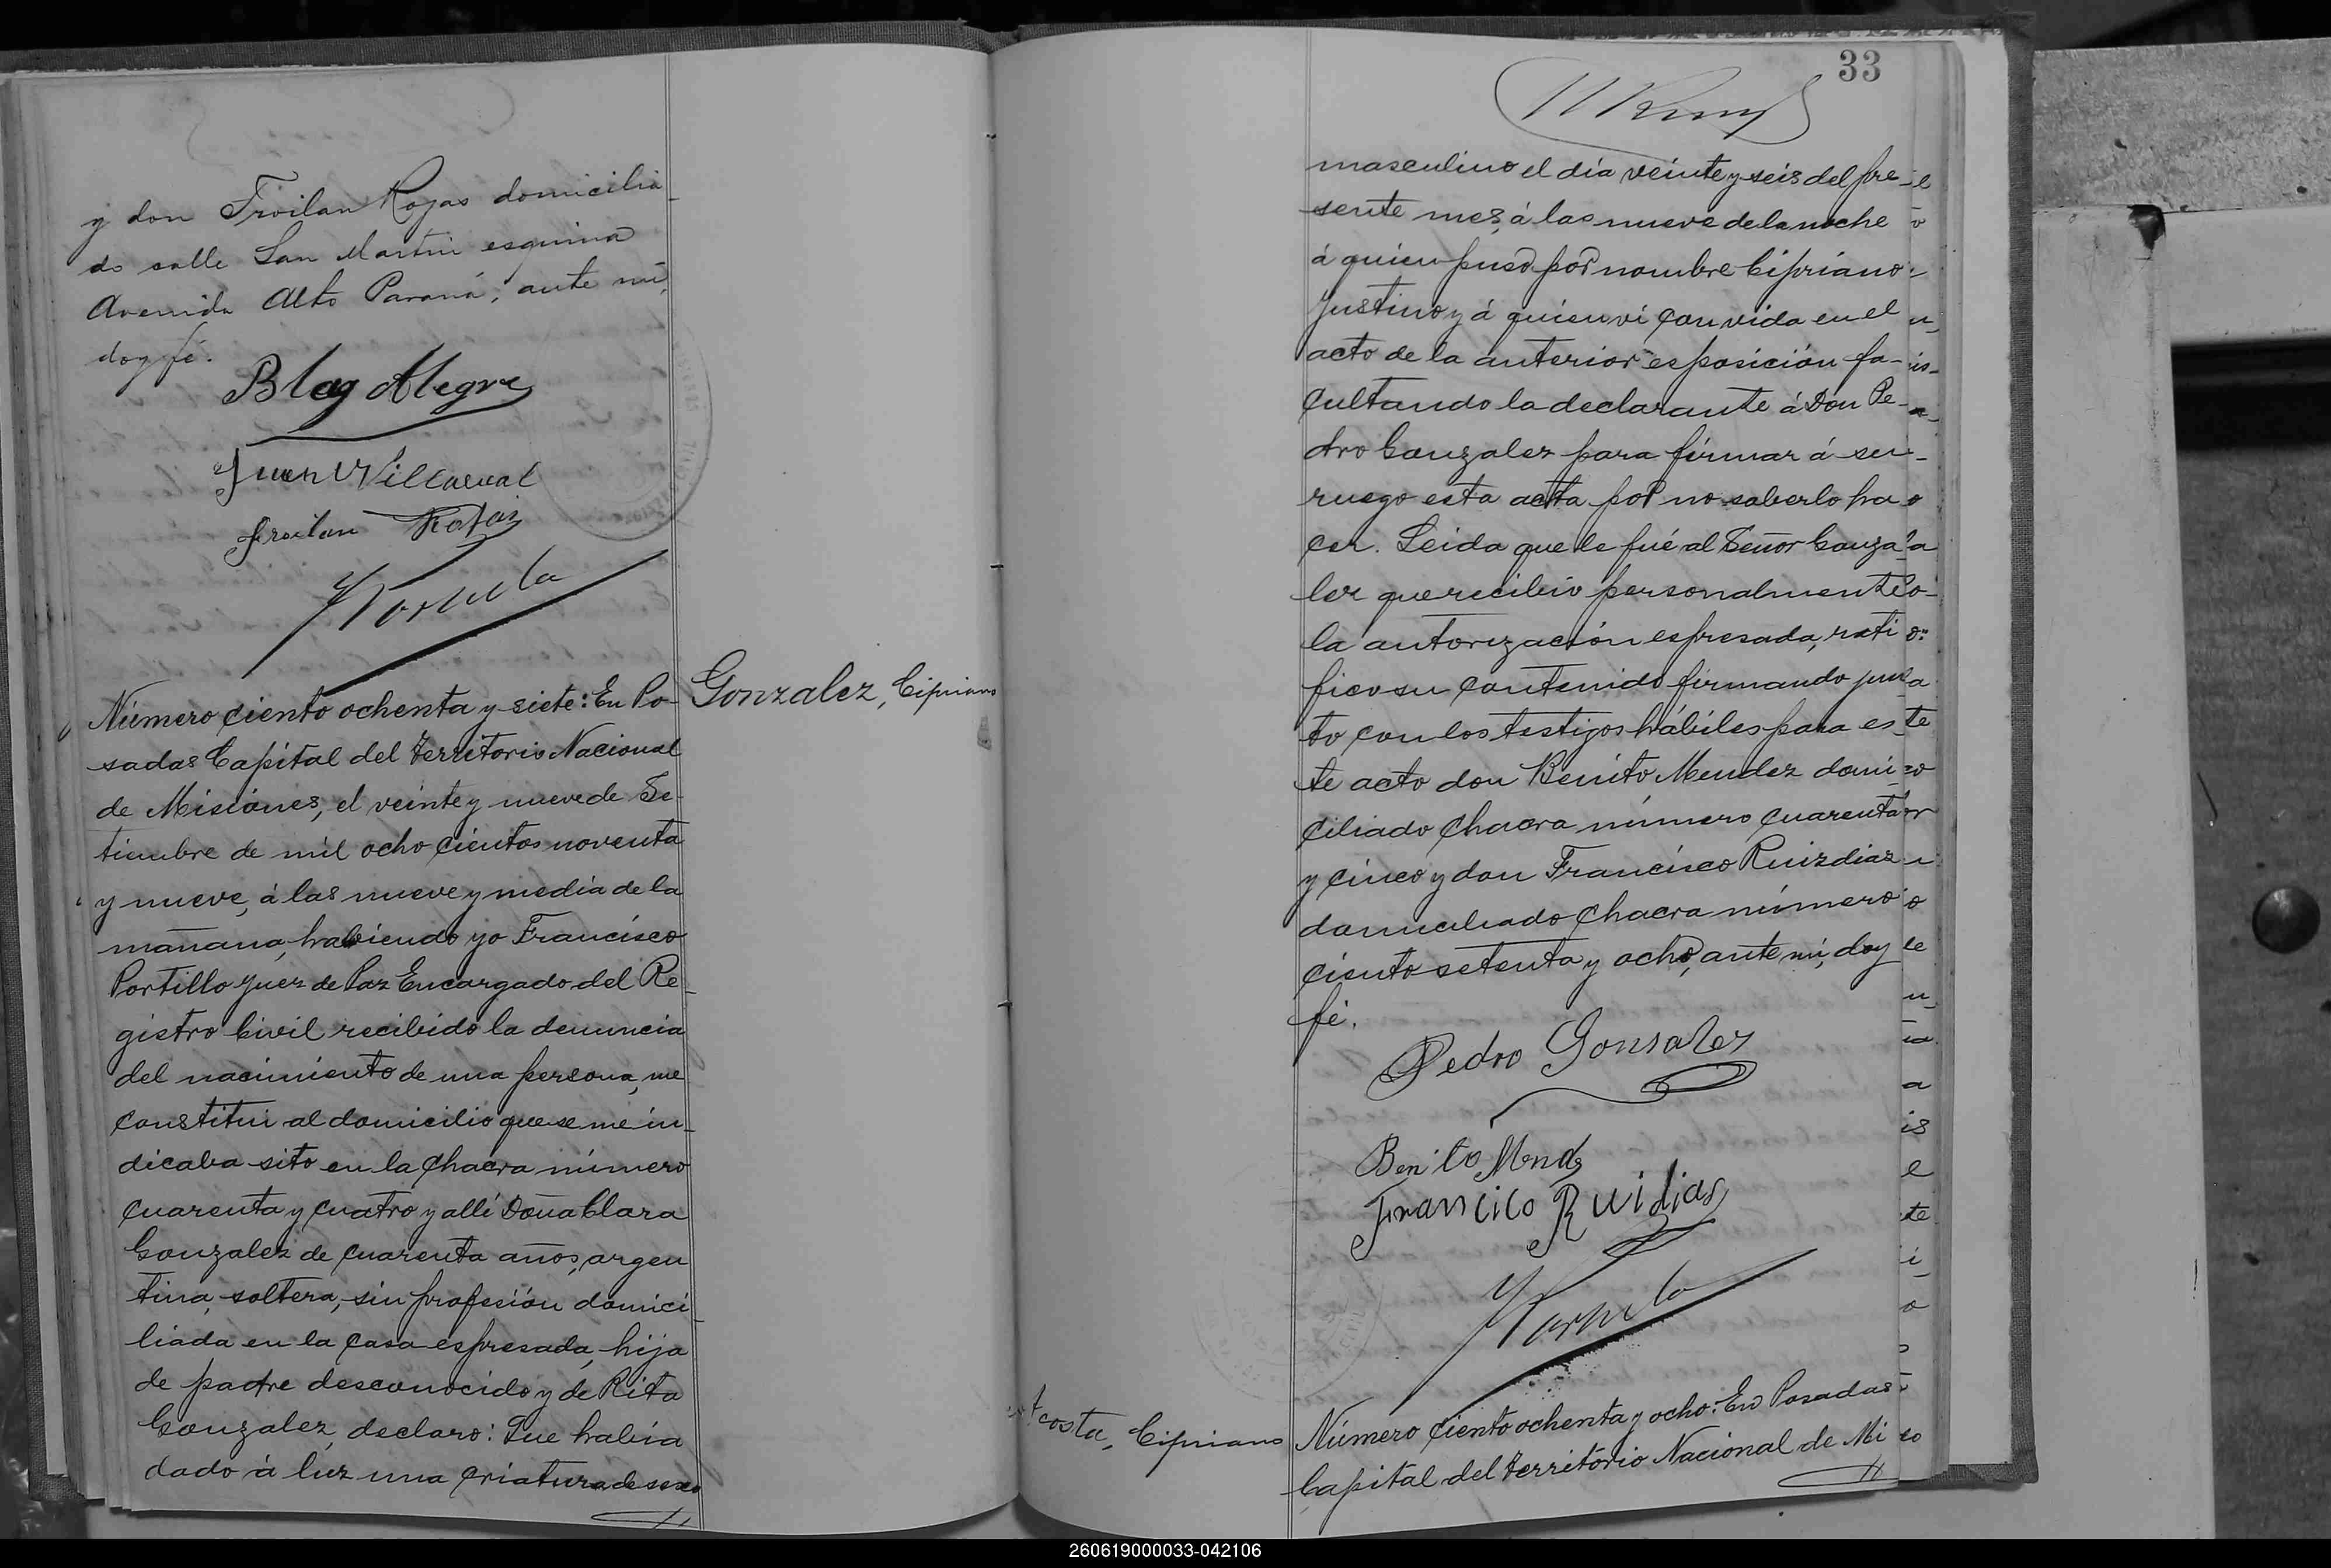 y don Froilan Rojas domicilia
do calle San Martin esquina
Avenida Alto Paraná, ante mi,
doy fé.
Blas Alegre
Juan Villarreal
froilan Rojas
Número ciento ochenta y siete: En Po-
Gonzalez, Cipriano
sadas Capital del Territorio Nacional
de Misiones, el veinte y nueve de Se-
tiembre de mil ocho cientos noventa
y nueve, á las nueve y media de la
mañana, habiendo yo Francisco
Portillo Juez de Paz Encargado del Re-
gistro Civil recibido la denuncia
del nacimiento de una persona, me
constitui al domicilio que se me in-
dicaba sito en la Chacra número
cuarenta y cuatro y allí Doña Clara
Gonzalez de cuarenta años, argen
tina, soltera, sin profesión domici-
liada en la casa espresada, hija
de padre desconocido y de Rita
Gonzalez, declaró: Que habia
dado á luz una criatura de sexo
33
masculino el día veinte y seis del pre-
sente mes, á las nueve de la noche
á quien puso por nombre Cipriano
Justino y á quien vi con vida en el
acto de la anterior esposición fa-
cultando la declarante á Don Pe-
dro Gonzalez para firmar á su
ruego esta acta por no saberlo ha
cer. Leida que le fué al Señor Gonza
lez que recibió personalmente
la autorización espresada, rati
ficó su contenido firmando jun
to con los testigos hábiles para es
te acto don Benito Mendez domi-
ciliado Chacra número cuarenta
y cinco y don Francisco Ruizdiaz
domiciliado Chacra número
ciento setenta y ocho, ante mi, doy
fé.
Pedro Gonsalez
Benito Mendz
Francico Ruidias
Acosta, Cipriano
Número ciento ochenta y ocho: En Posadas
Capital del Territorio Nacional de Mi
260619000033-042106